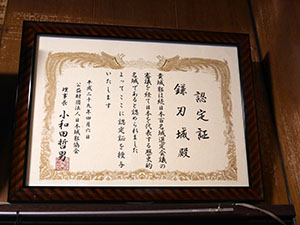 認定証
鎌刃城殿
貴城郭は続日本百名城選定会議の
審議を経て日本を代表する歴史的
名城であると認められました
よってここに認定証を授与
いたします
平成二十九年四月六日
公益財団法人日本城郭協会
理事長 小和田哲男